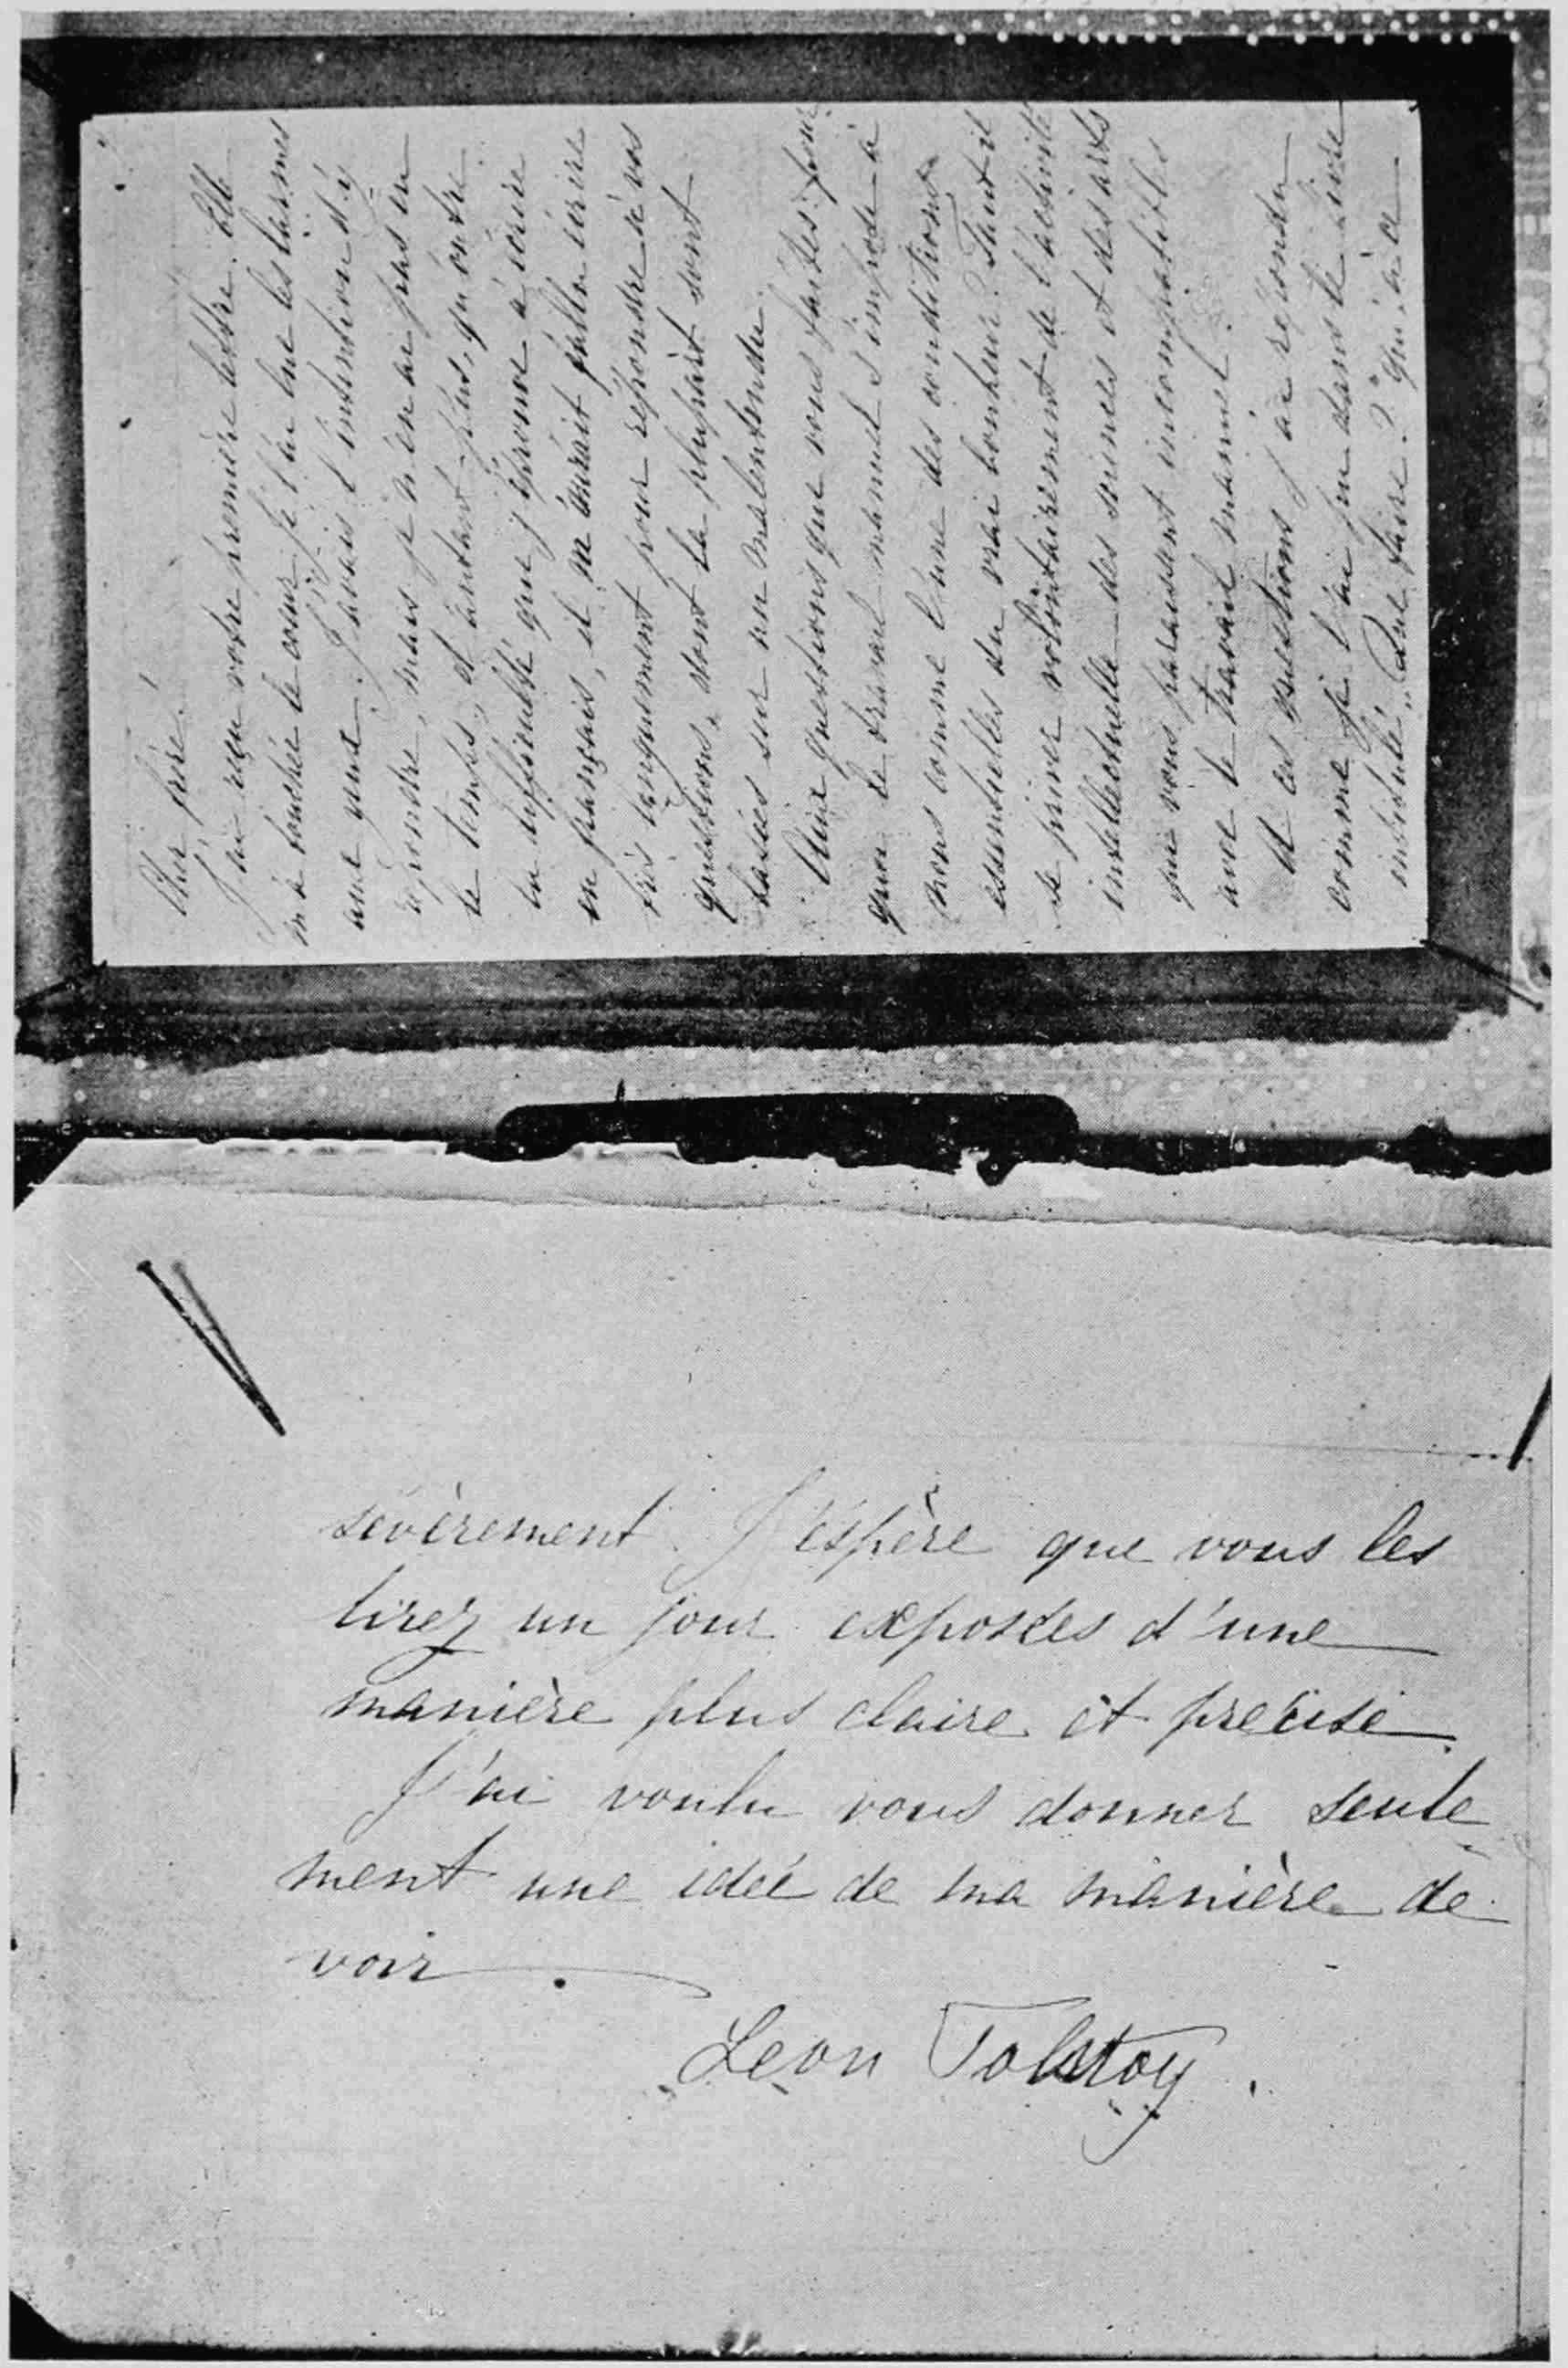 Cher frère!
J'ai reçu votre première lettre. Elle
m'a touchée le coeur. Je l'ai lue les larmes
aux yeux. J'avais l'intention d'y
repondre, mais je n'en ai pas eu
le temps, et d'autant plus, qu'outre
la difficulté que j'éprouve à écrire
en français, il m'aurait fallu écrire
très longuement pour repondre à vos
questions, dont la plupart sont
basées sur un malentendu.
Aux questions que vous faites: pour
quoi le travail manuel s'impose à
nous comme l'une des conditions
essentielles du vrai bonheur? Faut il
se priver volontairement de l'activité
intellectuelle des sciences et des arts
qui vous paraissent incompatibles
avec le travail manuel.
A ces questions j'ai repondu
comme je l'ai pu dans le livre
intitulé „Que faire? qui, à ce
sevèrement. J'éspère que vous les
lirez un jour exposées d'une
manière plus claire et precise.
J'ai voulu vous donner seule
ment une idée de ma manière de
voir.
Leon Tolstoy.